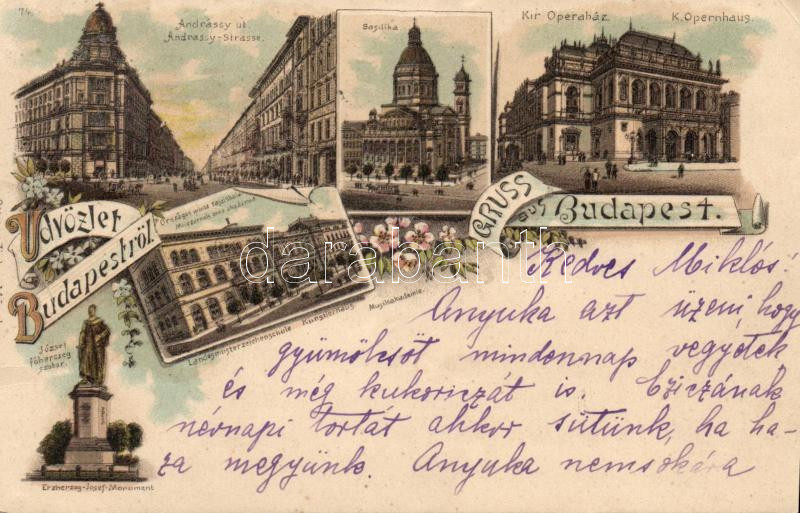 74.
Andrássy út.
Andrássy-Strasse.
Basilika
Kir Operaház. K. Opernhaus.
Üdvözlet
Budapestről!
Országos minta rajziskola
Műcsarnok
GRUSS
aus Budapest.
Landesmusterzeichenschule Künstlerhaus Musikakademie.
József
főherczeg
szobor.
Erzherzog-Josef-Monument
darabanth.com
Kedves Miklós!
Anyuka azt üzeni, hogy
gyümölcsöt mindennap vegyetek
és még kukoriczát is. Cziczának
névnapi tortát akkor sütünk, ha ha-
za megyünk. Anyuka nemsokára